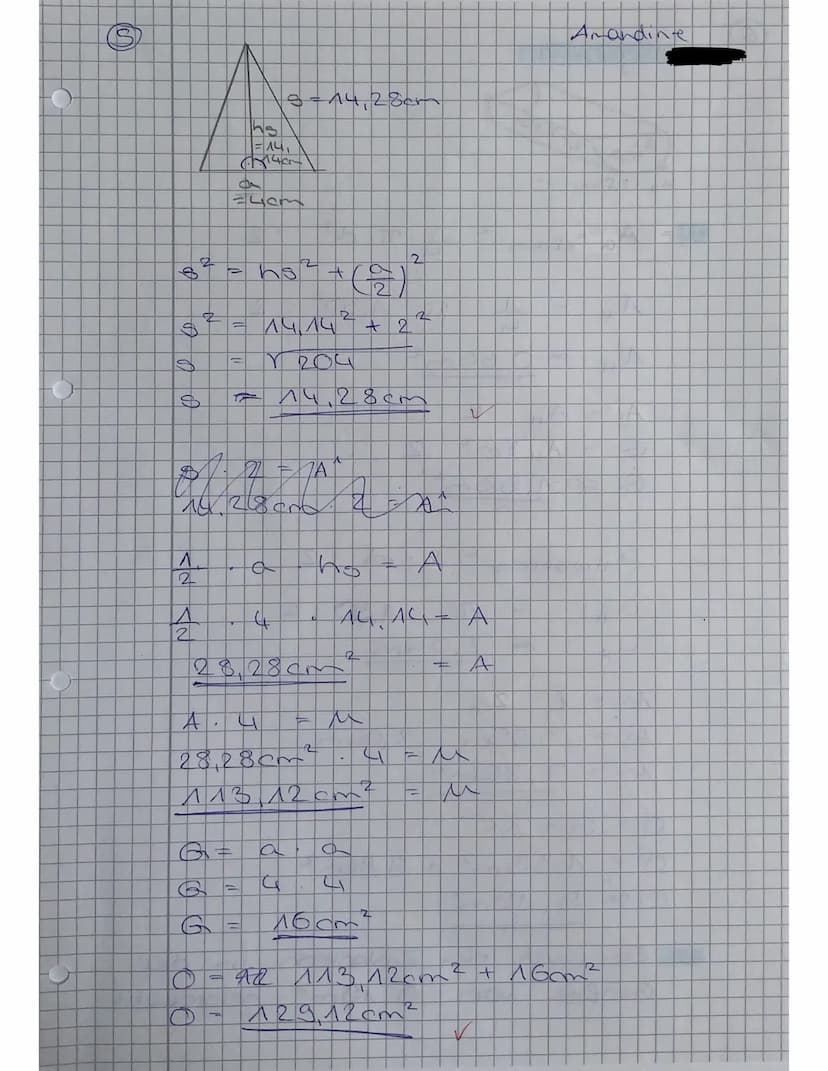 5
Amandine
s = 14,28cm
hs
= 14,
14cm
a
= 4cm
s² = hs² + (a/2)²
s² = 14,14² + 2²
s = √204
s = 14,28cm
1/2 · a · hs = A
1/2 · 4 · 14,14 = A
28,28cm² = A
A · 4 = M
28,28cm² · 4 = M
113,12cm² = M
G = a · a
G = 4 · 4
G = 16cm²
O = 113,12cm² + 16cm²
O = 129,12cm²